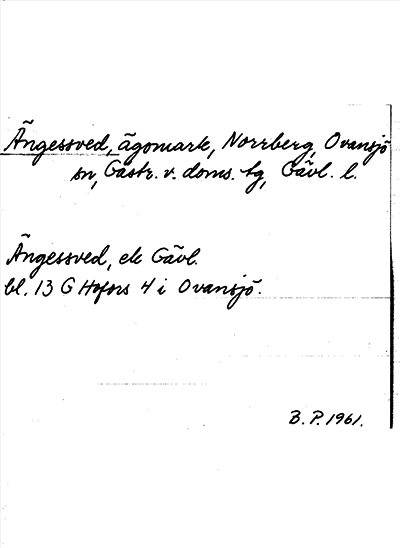 Ängessved, ägomark, Norrberg, Ovansjö
sn, Gästr. v. doms. tg, Gävl. l.
Ängessved, ek Gävl.
bl. 13 G Hofors 4 i Ovansjö.
B. P. 1961.